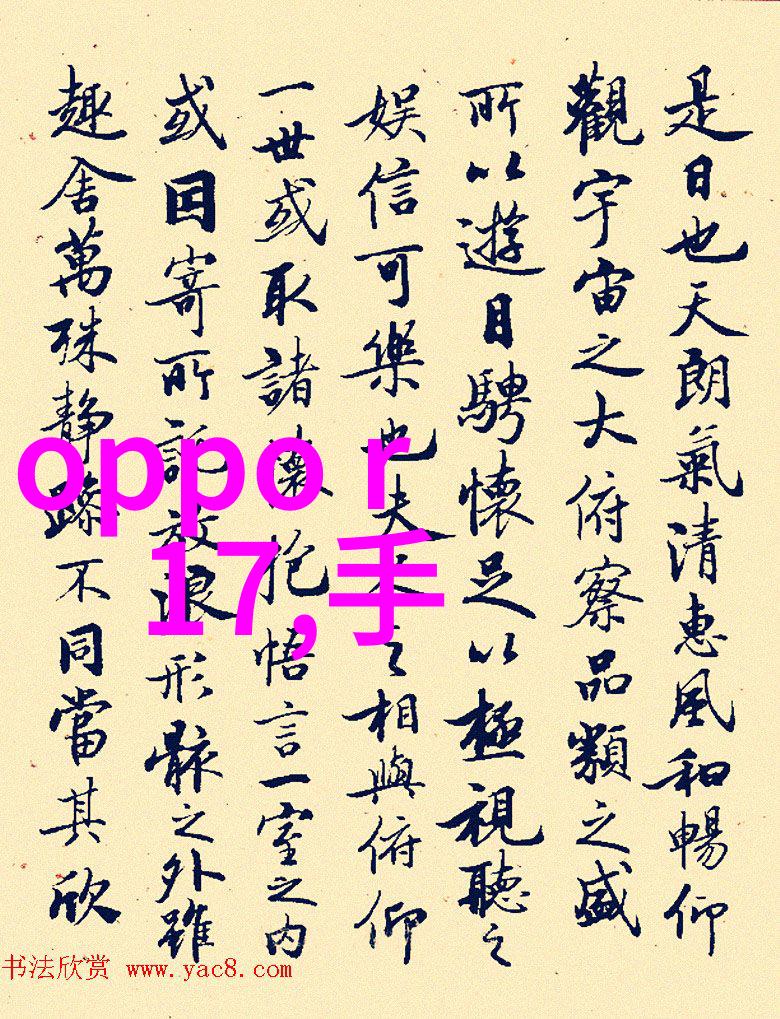 是日也天朗氣清惠風和暢仰
觀宇宙之大俯察品類之盛
所以遊目騁懷足以極視聽之
娱信可樂也夫人之相與俯仰
一世或取諸懷抱悟言一室之内
或因寄所託放浪形骸之外雖
趣舍萬殊静躁不同當其欣
oppo r
17,手
书法欣赏 www.yac8.com